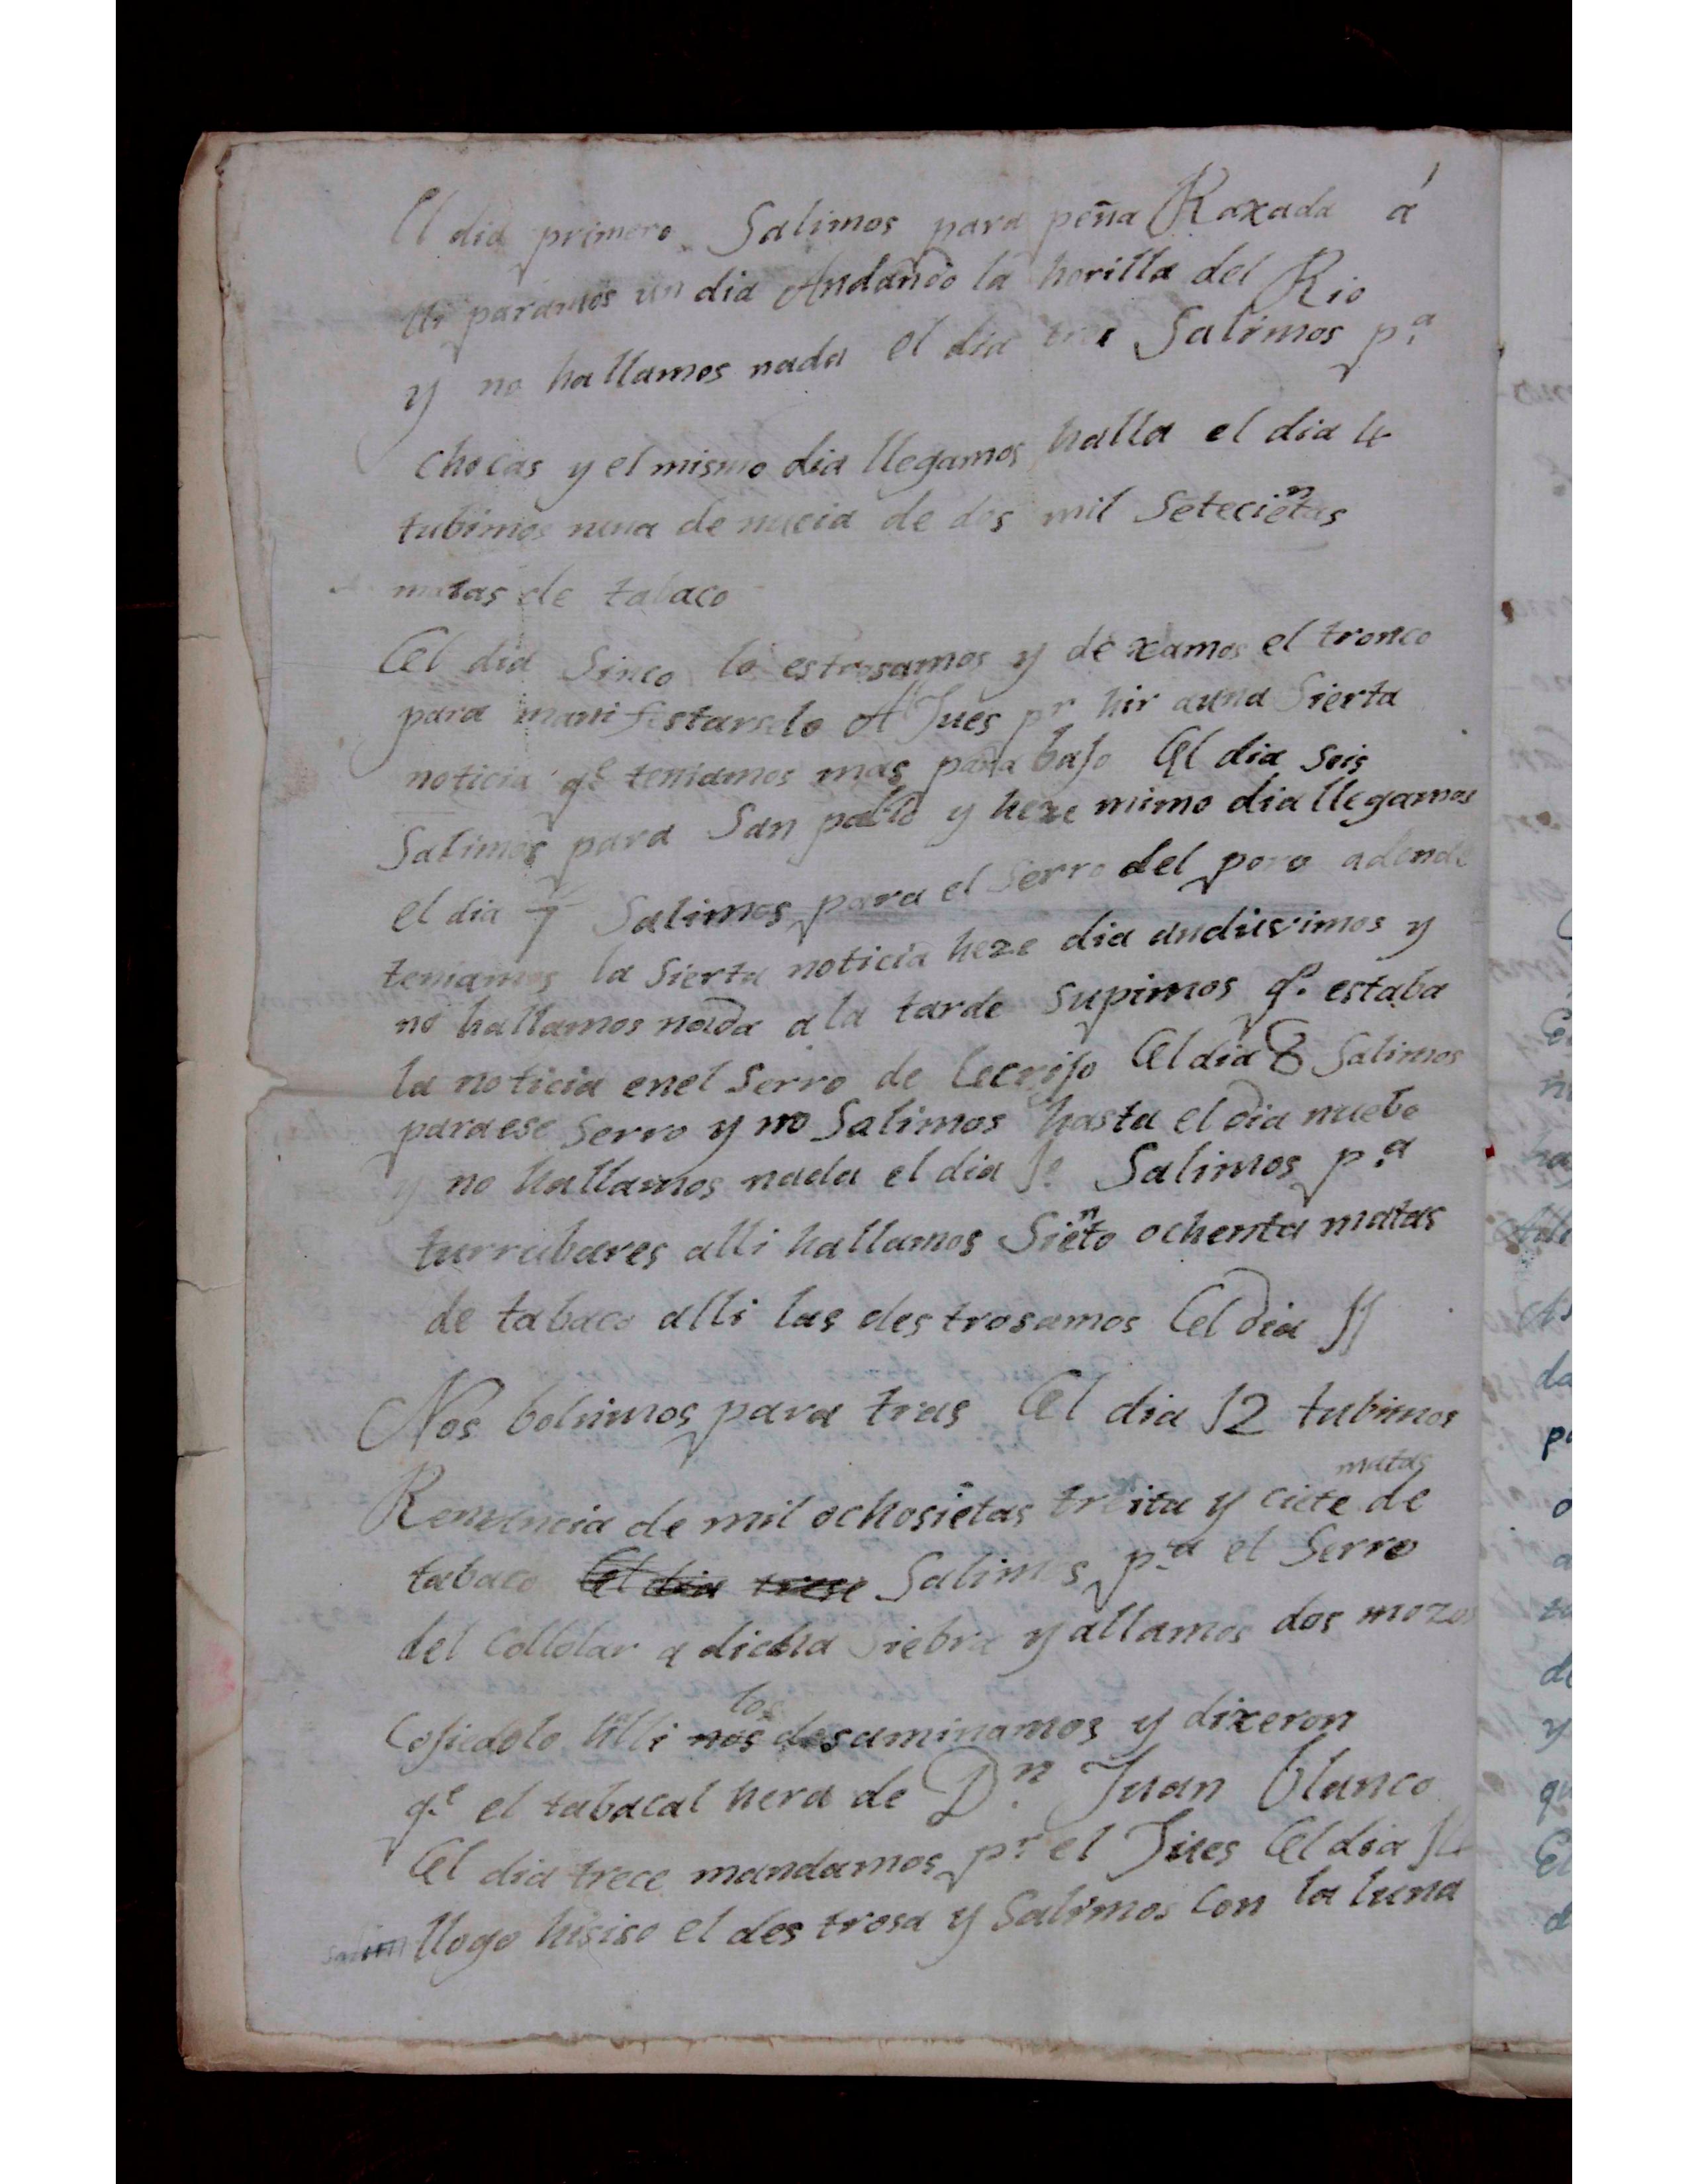 El dia primero Salimos para peña Raxada á
lli paramos un dia Andando la horilla del Rio
y no hallamos nada el dia tres Salimos p.ª
chocas y el mismo dia llegamos halla el dia 4
tubimos nuna de nucia de dos mil Setecientas
matas de tabaco
El dia Sinco lo estrosamos y dexamos el tronco
para manifestarselo Al Jues pr hir auna Sierta
noticia q.e teniamos mas para bajo El dia seis
Salimos para San pablo y heze mimo dia llegamos
el dia 7 Salimos para el Serro del poro adonde
teniamos la Sierta noticia heze dia anduvimos y
no hallamos nada ala tarde supimos q.e estaba
la noticia enel serro de lecrijo El dia 8 Salimos
paraese serro y no Salimos hasta el dia nuebe
y no hallamos nada el dia 10 Salimos p.ª
turrubares alli hallamos Siento ochenta matas
de tabaco alli las des trosamos El dia 11
Nos bolvimos para tras El dia 12 tubimos
Renuncia de mil ochosiētas treita y ciete matas de
tabaco El dia trese Salimos p.ra el Serro
del Collolar a dicha siebra y allamos dos mozos
Cojiedolo alli nos los desaminamos y dixeron
q.e el tabacal hera de D.n Juan blanco
El dia trece mandamos p.r el Jues El dia 14
salim llogo hisiso el des trosa y Salimos Con la luna